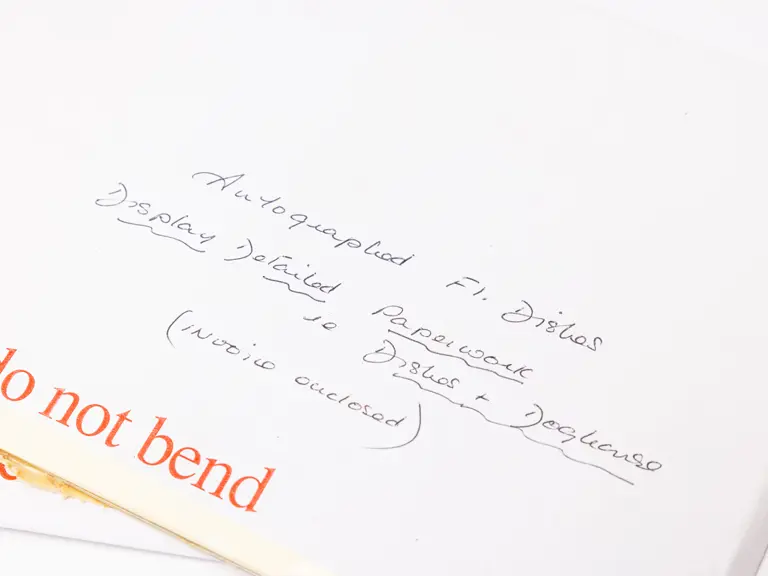 Autographed F1. Dishes
Display Detailed Paperwork
ie Dishes + Doghouse
(invoice enclosed)
do not bend